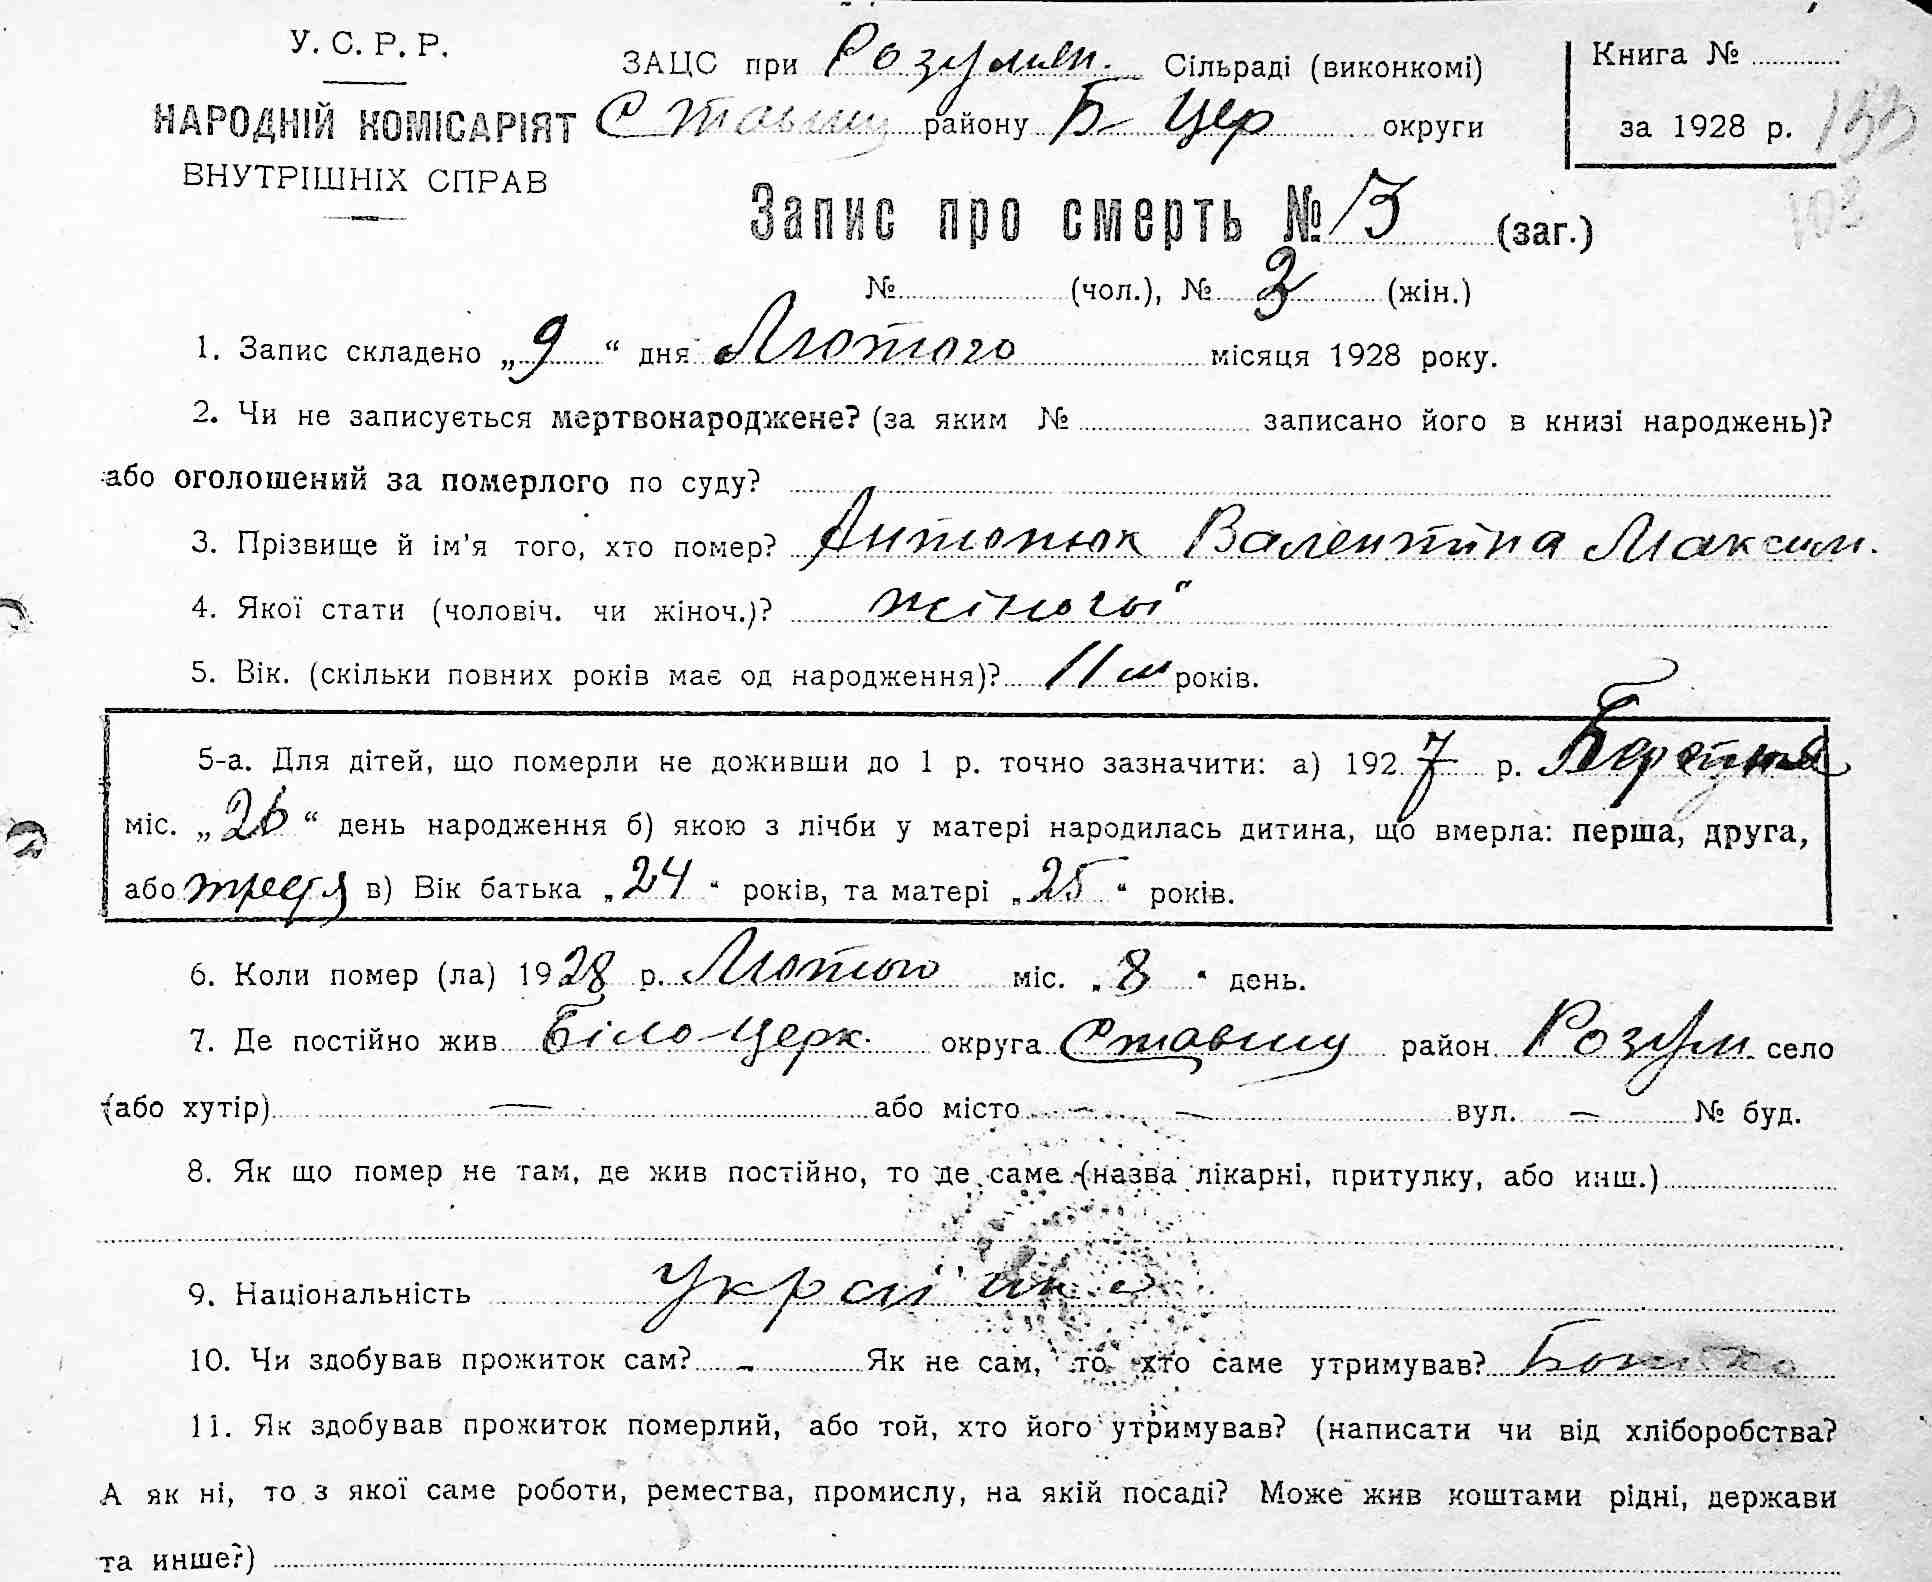 У. С. Р. Р.
НАРОДНІЙ КОМІСАРІЯТ
ВНУТРІШНІХ СПРАВ
ЗАЦС при Розумян. Сільраді (виконкомі)
Ставищ району Б-Цер округи
Книга №
за 1928 р.
Запис про смерть № 3 (заг.)
№ (чол.), № 2 (жін.)
1. Запис складено „9“ дня Лютого місяця 1928 року.
2. Чи не записується мертвонароджене? (за яким № записано його в книзі народжень)?
або оголошений за померлого по суду?
3. Прізвище й ім'я того, хто помер? Антонюк Валентина Максим.
4. Якої стати (чоловіч. чи жіноч.)? жіночої
5. Вік. (скільки повних років має од народження)? 11 м років.
5-а. Для дітей, що померли не доживши до 1 р. точно зазначити: а) 1927 р. Березня
міс. „26“ день народження б) якою з лічби у матері народилась дитина, що вмерла: перша, друга,
або третя в) Вік батька „24“ років, та матері „25“ років.
6. Коли помер (ла) 1928 р. Лютого міс. „8“ день.
7. Де постійно жив Біло-Церк. округа Ставищ район Розум. село
(або хутір) — або місто — — вул. — № буд.
8. Як що помер не там, де жив постійно, то де саме (назва лікарні, притулку, або инш.)
9. Національність Україн
10. Чи здобував прожиток сам? - Як не сам, то хто саме утримував? Батько
11. Як здобував прожиток померлий, або той, хто його утримував? (написати чи від хліборобства?
А як ні, то з якої саме роботи, ремества, промислу, на якій посаді? Може жив коштами рідні, держави
та инше?)